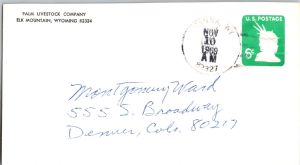 PALM LIVESTOCK COMPANY
ELK MOUNTAIN, WYOMING 82324
NOV
10
AM
U.S. POSTAGE
6¢
Montgomery Ward
555 S. Broadway
Denver, Colo. 80217